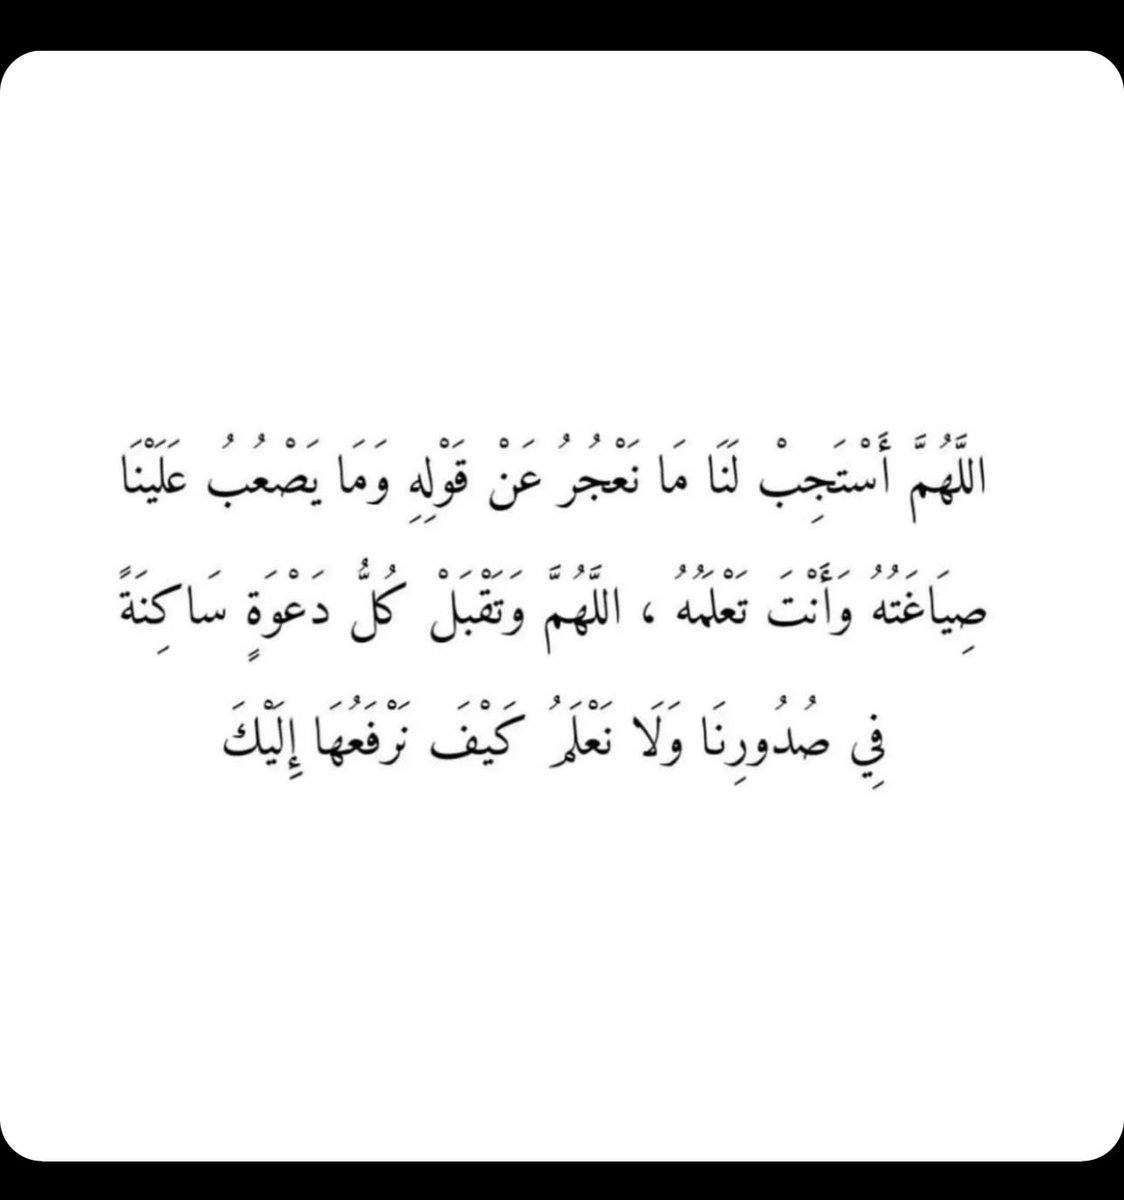 اللَّهُمَّ أَسْتَجِبْ لَنَا مَا نَعْجُرُ عَنْ قَوْلِهِ وَمَا يَصْعُبُ عَلَيْنَا
صِيَاغَتُهُ وَأَنْتَ تَعْلَمُهُ ، اللَّهُمَّ وَتَقْبَلْ كُلُّ دَعْوَةٍ سَاكِنَةً
فِي صُدُورِنَا وَلَا نَعْلَمُ كَيْفَ نَرْفَعُهَا إِلَيْكَ